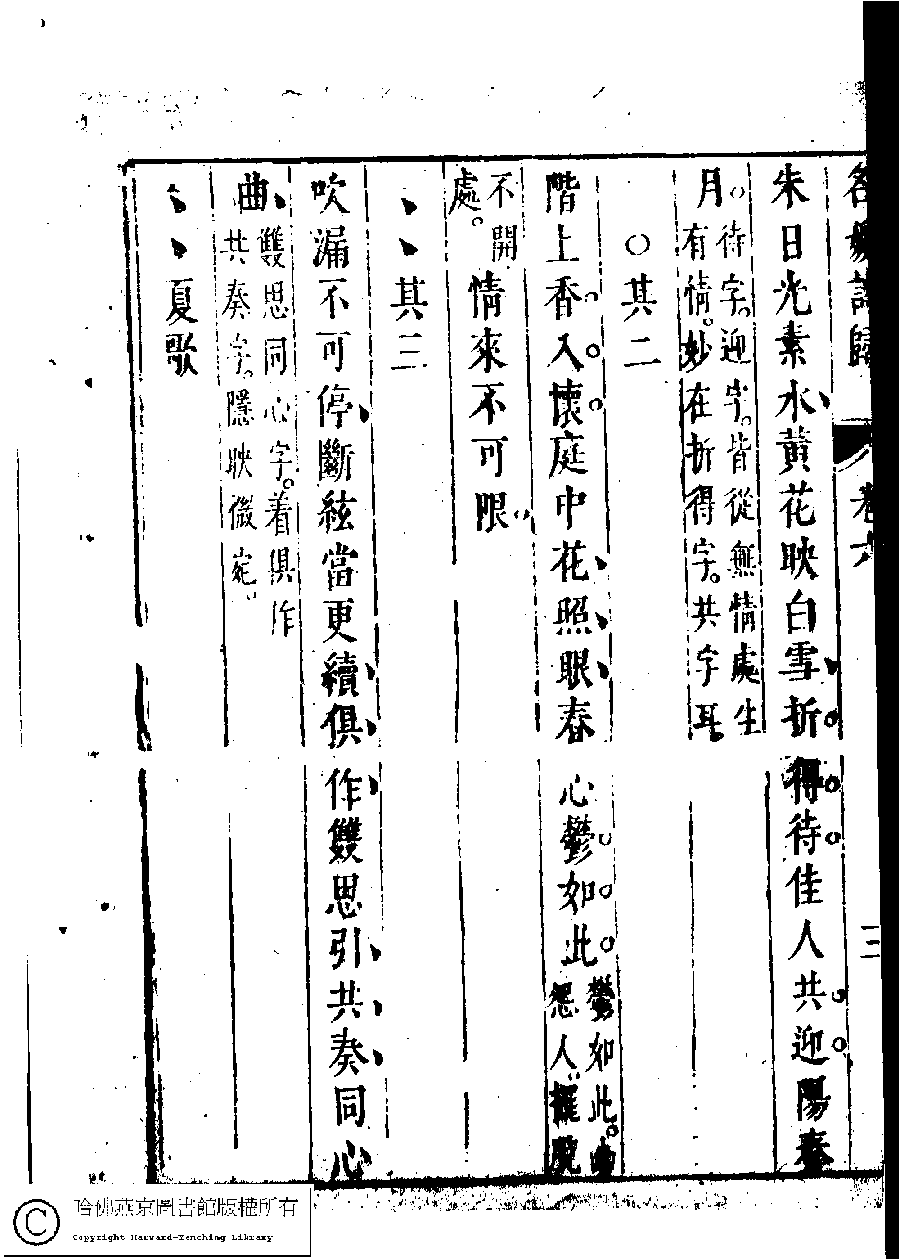 名媛詩歸 卷六 三
朱日光素水黃花映白雪折得待佳人共迎陽春
月。待字。迎字。皆從無情處生
有情。妙在折得字。共字耳。
○其二
階上香入懷庭中花照眼春心鬱如此鬱如此。
怨人。擺脫
不開
處。情來不可限
其三
吹漏不可停斷絃當更續俱作雙思引共奏同心
曲雙思同心字。着俱作
共奏字。隱映微宛
夏歌
哈佛燕京圖書館版權所有
Copyright Harvard-Yenching Library